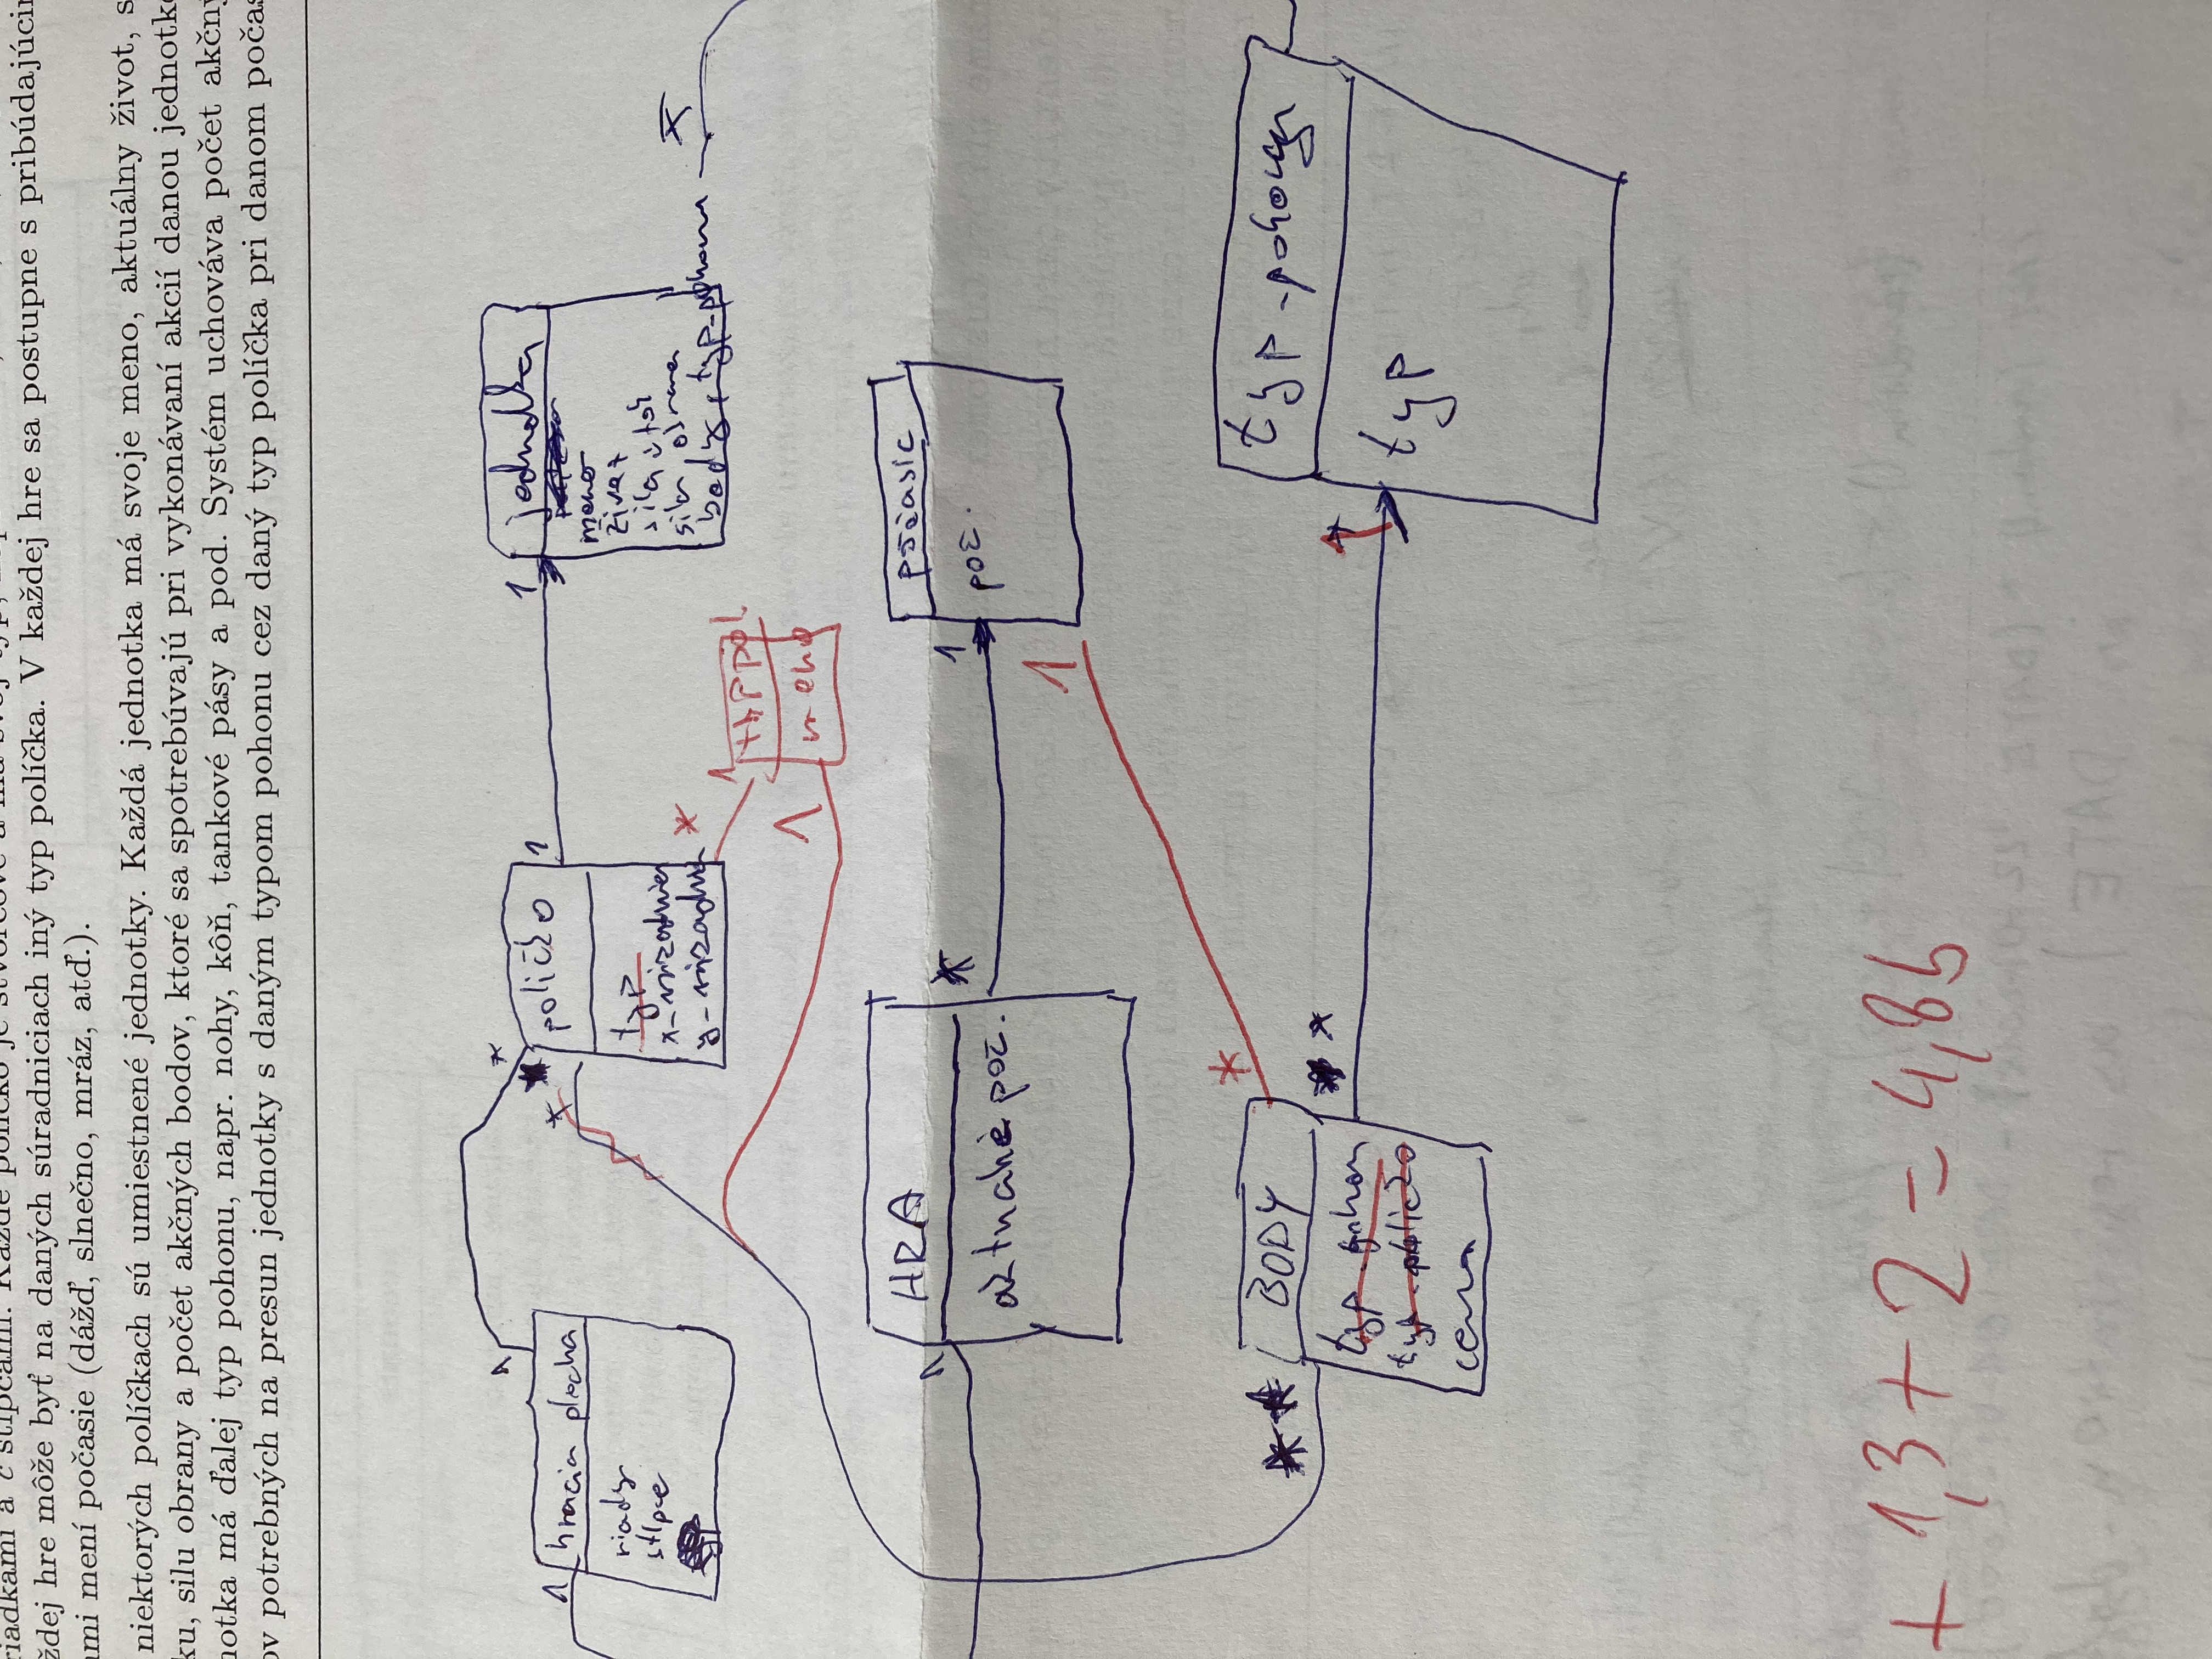 riadkami a c stĺpcami. Každé políčko je štvorcové a má svoj typ,
ždej hre môže byť na daných súradniciach iný typ políčka. V každej hre sa postupne s pribúdajúcim
ami mení počasie (dážď, slnečno, mráz, atď.).
niektorých políčkach sú umiestnené jednotky. Každá jednotka má svoje meno, aktuálny život, s
ku, silu obrany a počet akčných bodov, ktoré sa spotrebúvajú pri vykonávaní akcií danou jednotko
notka má ďalej typ pohonu, napr. nohy, kôň, tankové pásy a pod. Systém uchováva počet akčný
ov potrebných na presun jednotky s daným typom pohonu cez daný typ políčka pri danom počas
1 * 
1 hracia plocha
riady
stlpce
* políčko 1
typ
x-surzadnica
y-surzadn
1 jednotka
meno
život
sila útok
sila obrana
body, typ-pohonu *
* 1 typ pol.
1 meno
1 HRA *
aktuálne poč.
1 počasie
poč.
1
*
* * BODY * *
typ-pohon
typ-políčko
cena
1 typ-pohonu
typ
+ 1,3 + 2 = 4,8b